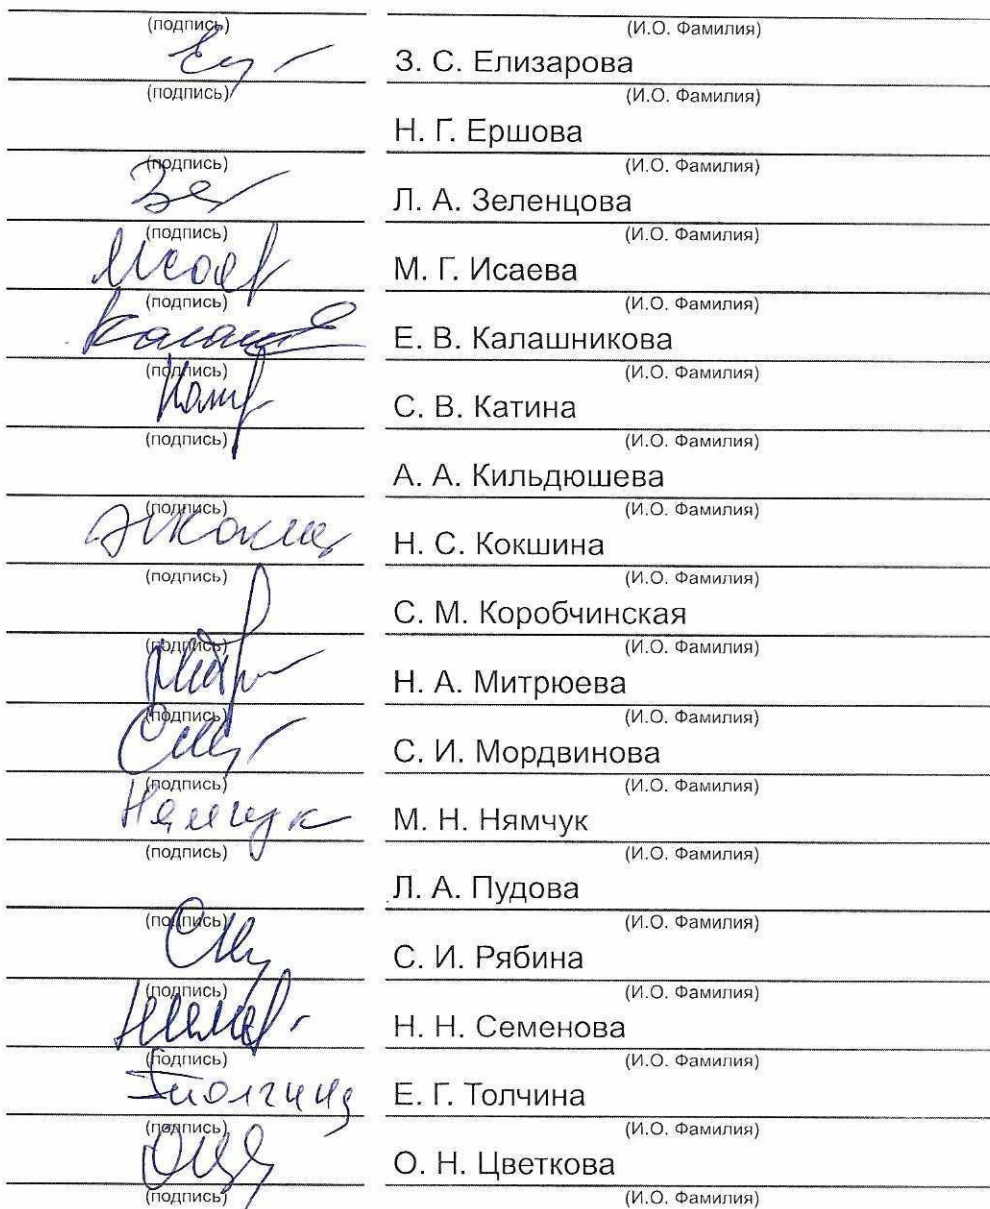 (подпись) (И.О. Фамилия)
З. С. Елизарова
(подпись) (И.О. Фамилия)
Н. Г. Ершова
(подпись) (И.О. Фамилия)
Л. А. Зеленцова
(подпись) (И.О. Фамилия)
М. Г. Исаева
(подпись) (И.О. Фамилия)
Е. В. Калашникова
(подпись) (И.О. Фамилия)
С. В. Катина
(подпись) (И.О. Фамилия)
А. А. Кильдюшева
(подпись) (И.О. Фамилия)
Н. С. Кокшина
(подпись) (И.О. Фамилия)
С. М. Коробчинская
(подпись) (И.О. Фамилия)
Н. А. Митрюева
(подпись) (И.О. Фамилия)
С. И. Мордвинова
(подпись) (И.О. Фамилия)
Нямчук М. Н. Нямчук
(подпись) (И.О. Фамилия)
Л. А. Пудова
(подпись) (И.О. Фамилия)
С. И. Рябина
(подпись) (И.О. Фамилия)
Н. Н. Семенова
(подпись) (И.О. Фамилия)
Е. Г. Толчина
(подпись) (И.О. Фамилия)
О. Н. Цветкова
(подпись) (И.О. Фамилия)